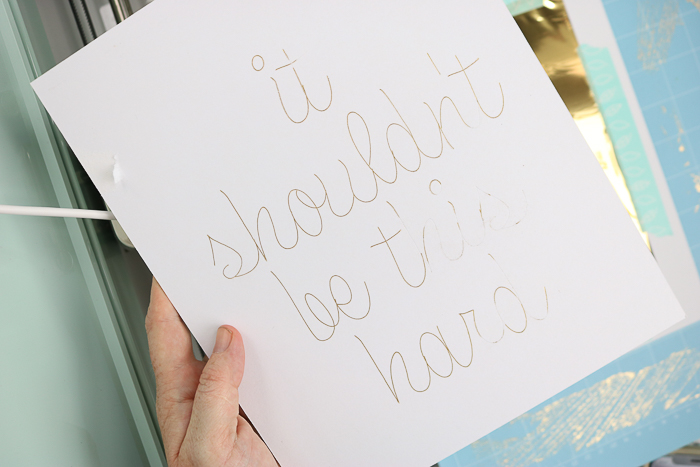 it
shouldn't
be this
hard